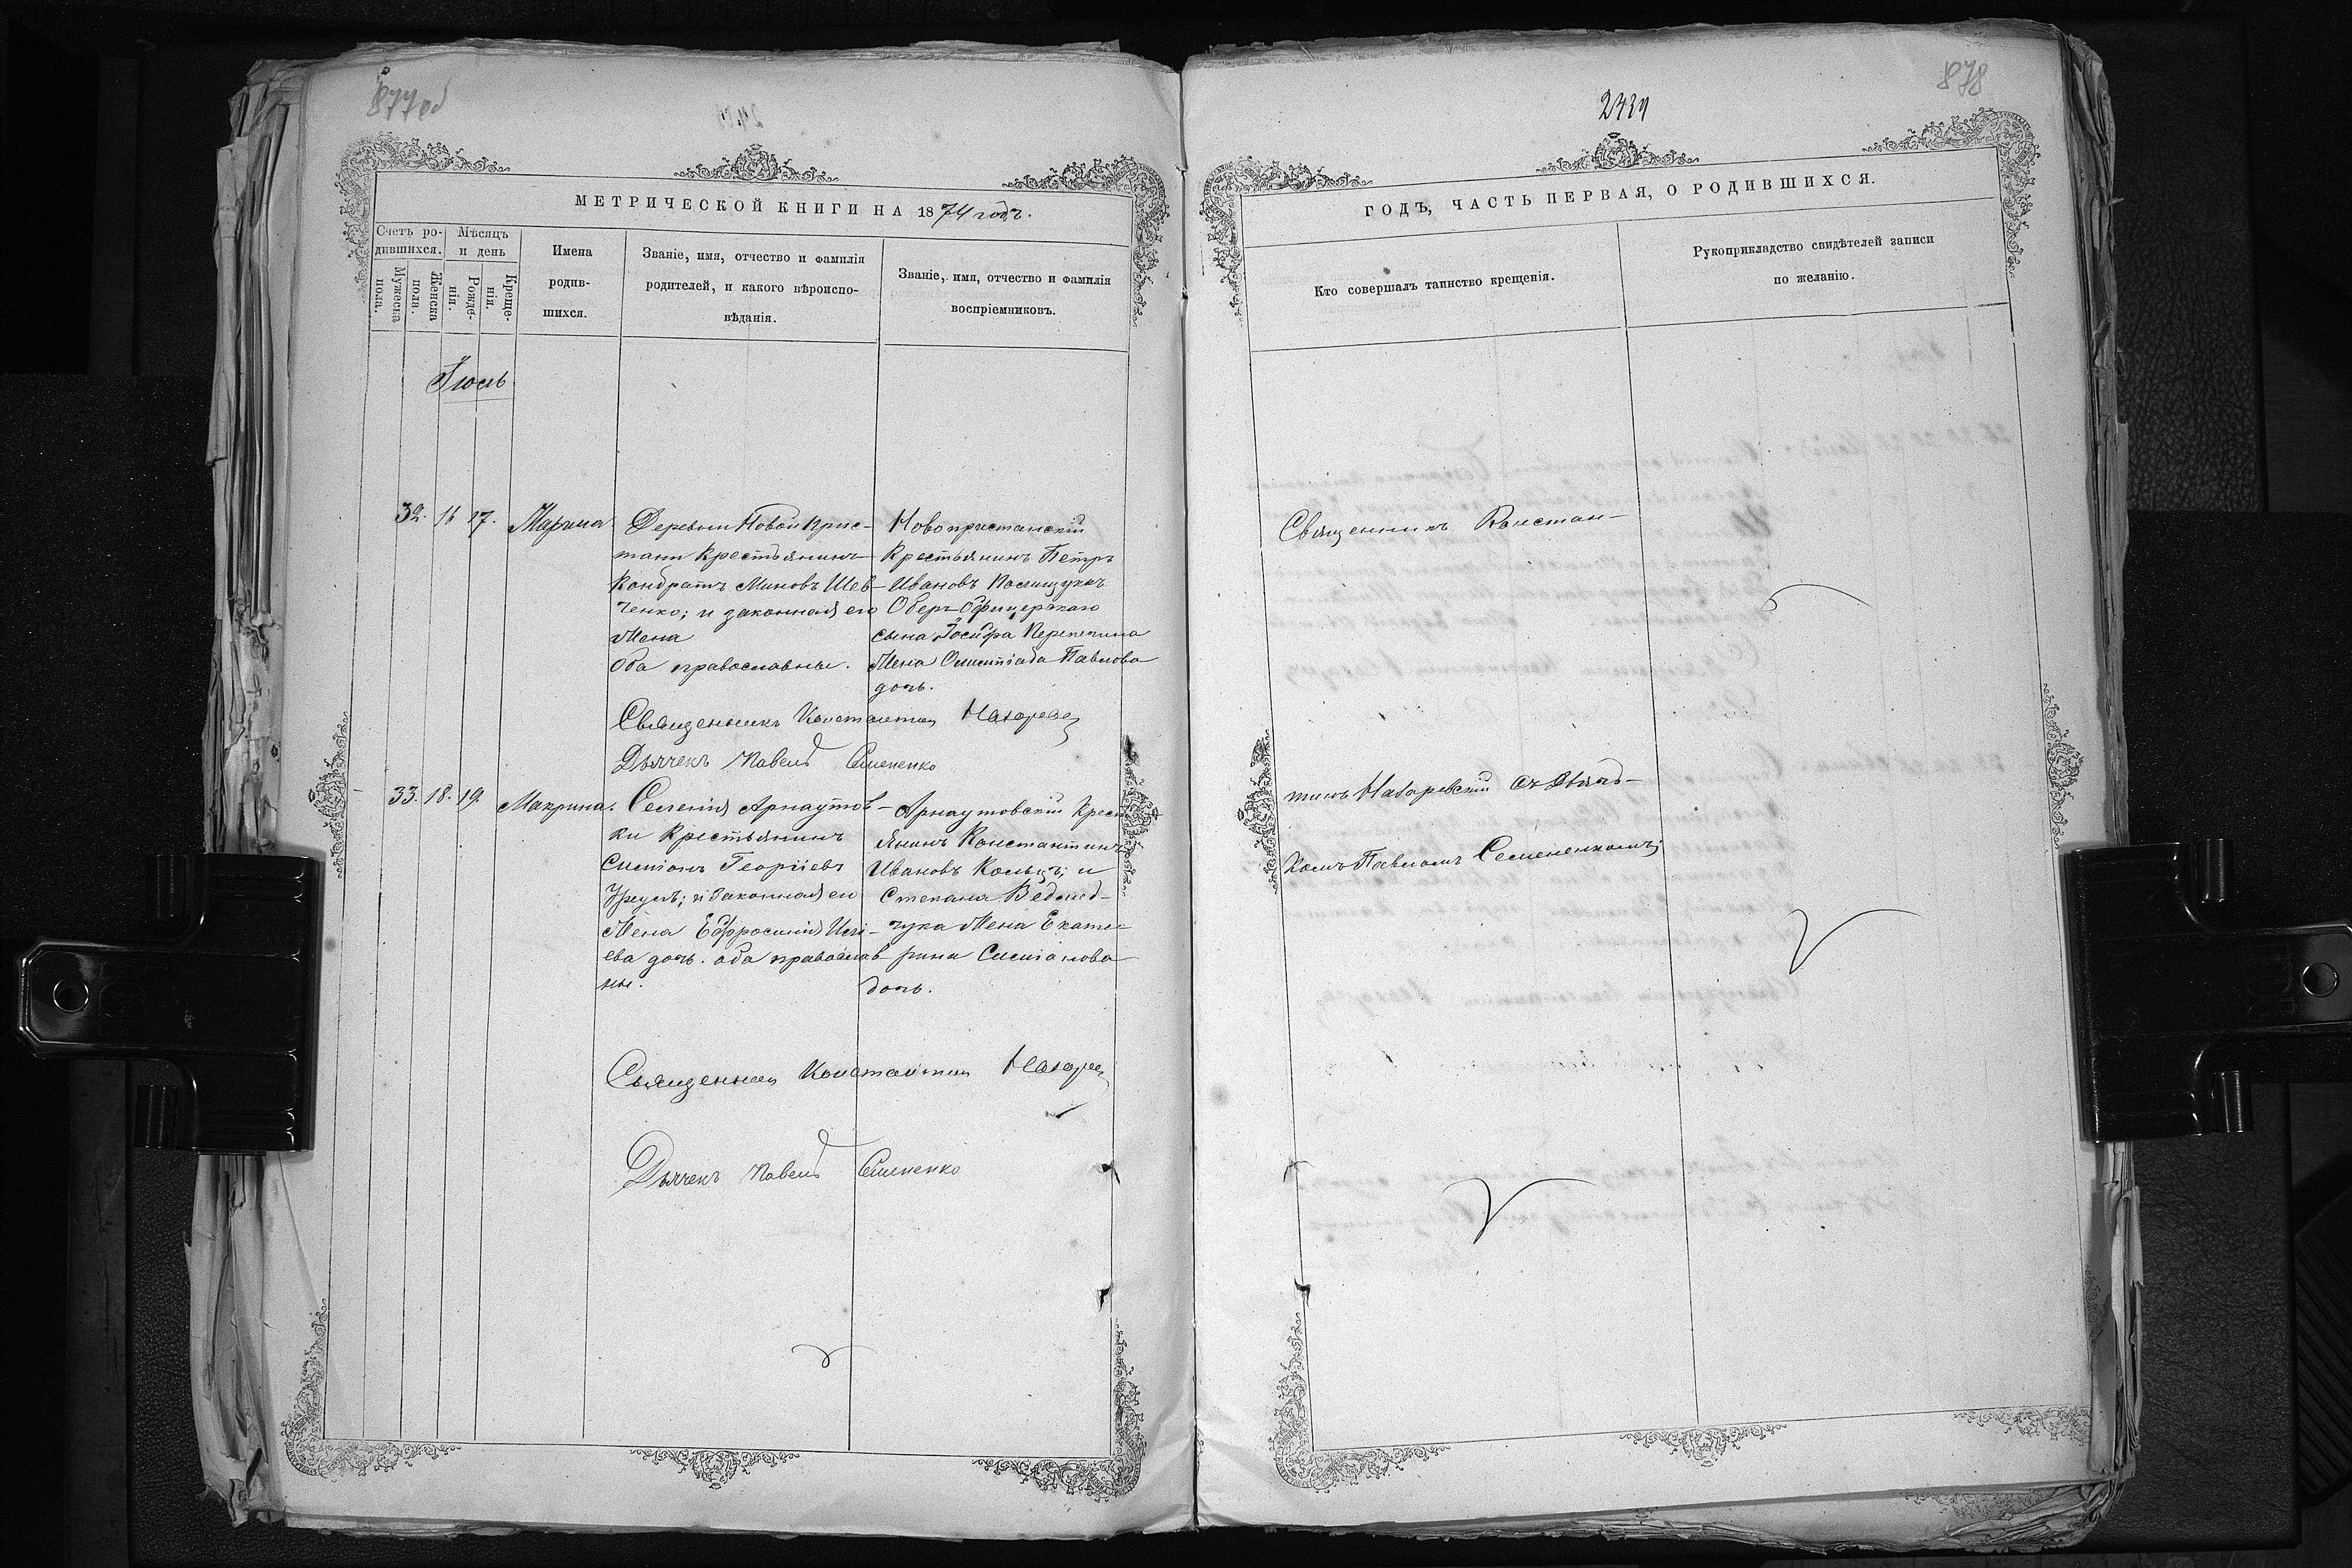 877 об
МЕТРИЧЕСКОЙ КНИГИ НА 1874 годъ.
Счетъ ро-
дившихся.
Мужеска
пола.
Женска
пола.
Мѣсяцъ
и день
Рожде-
нія.
Креще-
нія.
Имена
родив-
шихся.
Званіе, имя, отчество и фамилія
родителей, и какого вѣроиспо-
вѣданія.
Званіе, имя, отчество и фамилія
воспріемниковъ.
Іюль
32. 16 17. Марина
Деревни Новой Прис-
тани Крестьянинъ
Кондратъ Миновъ Шев-
ченко; и законная его
Жена
Оба православны.
Новопристанскій
Крестьянинъ Петръ
Ивановъ Полищукъ
Оберъ-Офицерскаго
сына Іосифа Перепечина
Жена Олимпіада Павлова
дочь.
Священникъ Константинъ
Дьячекъ Павелъ Семененко
33. 18. 19. Макрина.
Селенія Арнаутов-
ки Крестьянинъ
Симіонъ Георгіевъ
и законная его
Жена Ефросинія
ева дочь. оба православ
ны.
Арнаутовскій Крест
янинъ Константинъ
Ивановъ и
Степана Ведмед-
чука Жена Екате-
рина Симіонова
дочь.
Священникъ Константинъ
Дьячекъ Павелъ Семененко
878
2434
ГОДЪ, ЧАСТЬ ПЕРВАЯ, О РОДИВШИХСЯ.
Кто совершалъ таинство крещенія.
Рукоприкладство свидѣтелей записи
по желанію.
Священникъ Констан-
тинъ Назаревскій съ Дьяч-
комъ Павломъ Семененкомъ;